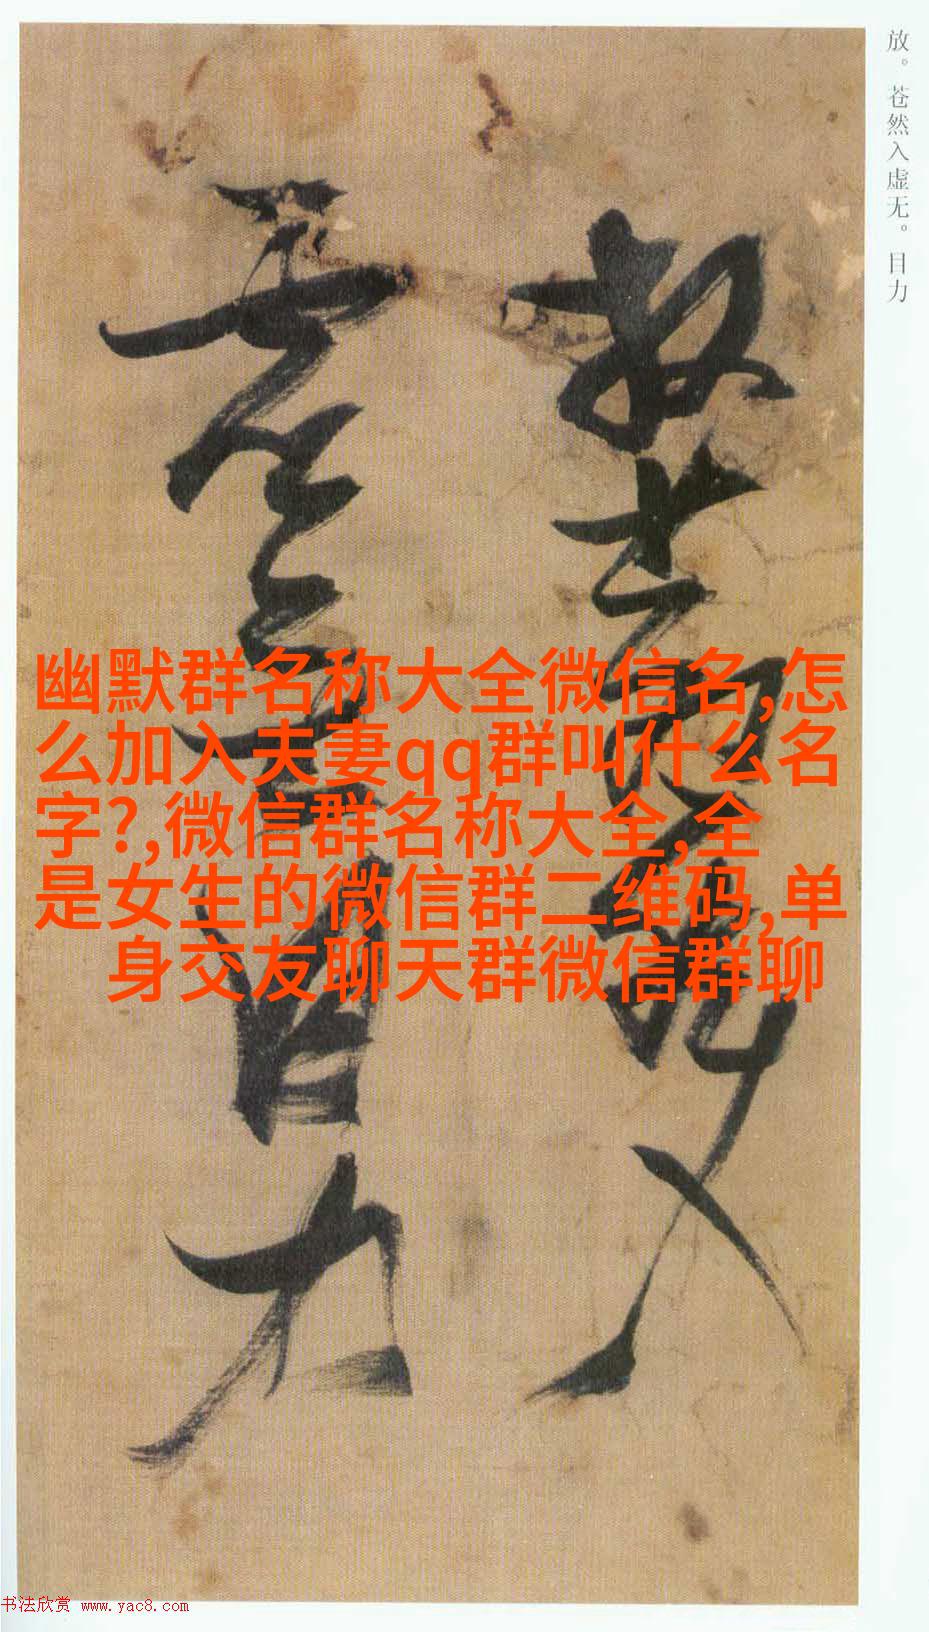 放。苍然入虚无。目力
放蒼然入
虛無目力
幽默群名称大全微信名,怎
么加入夫妻qq群叫什么名
字?,微信群名称大全,全
是女生的微信群二维码,单
身交友聊天群微信群聊
书法欣赏 www.yac8.com